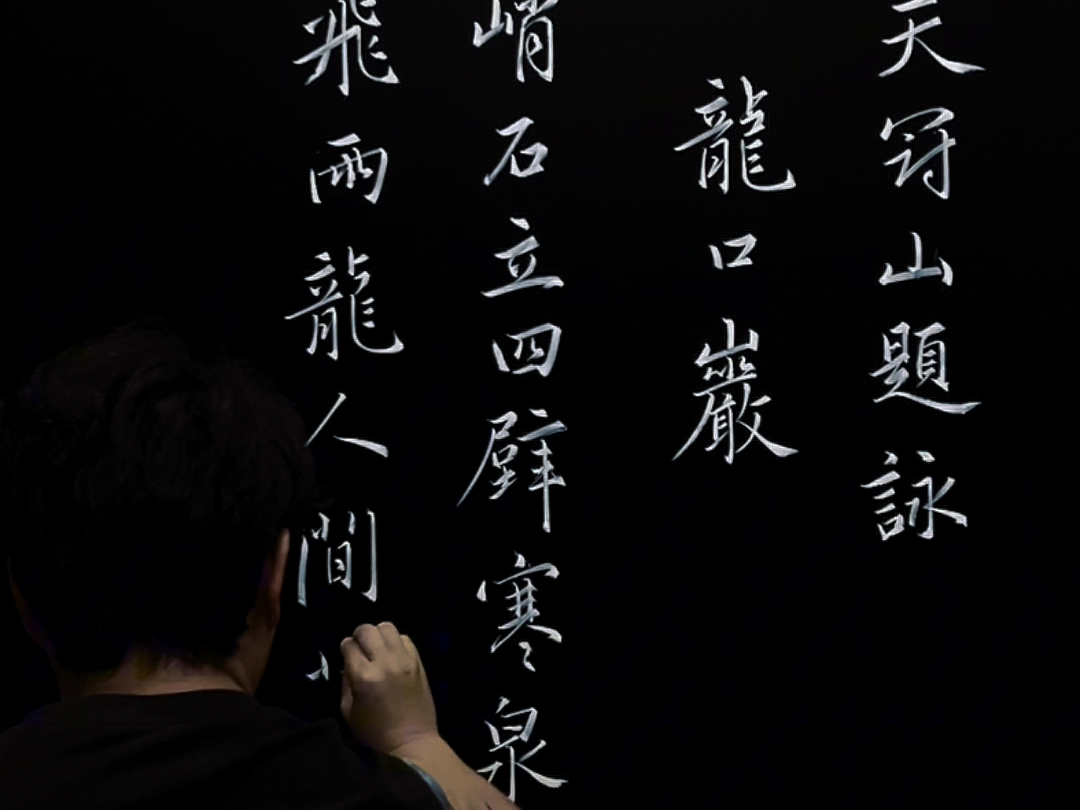 天冠山題詠
龍口巖
峭石立四壁寒泉
飛兩龍人間